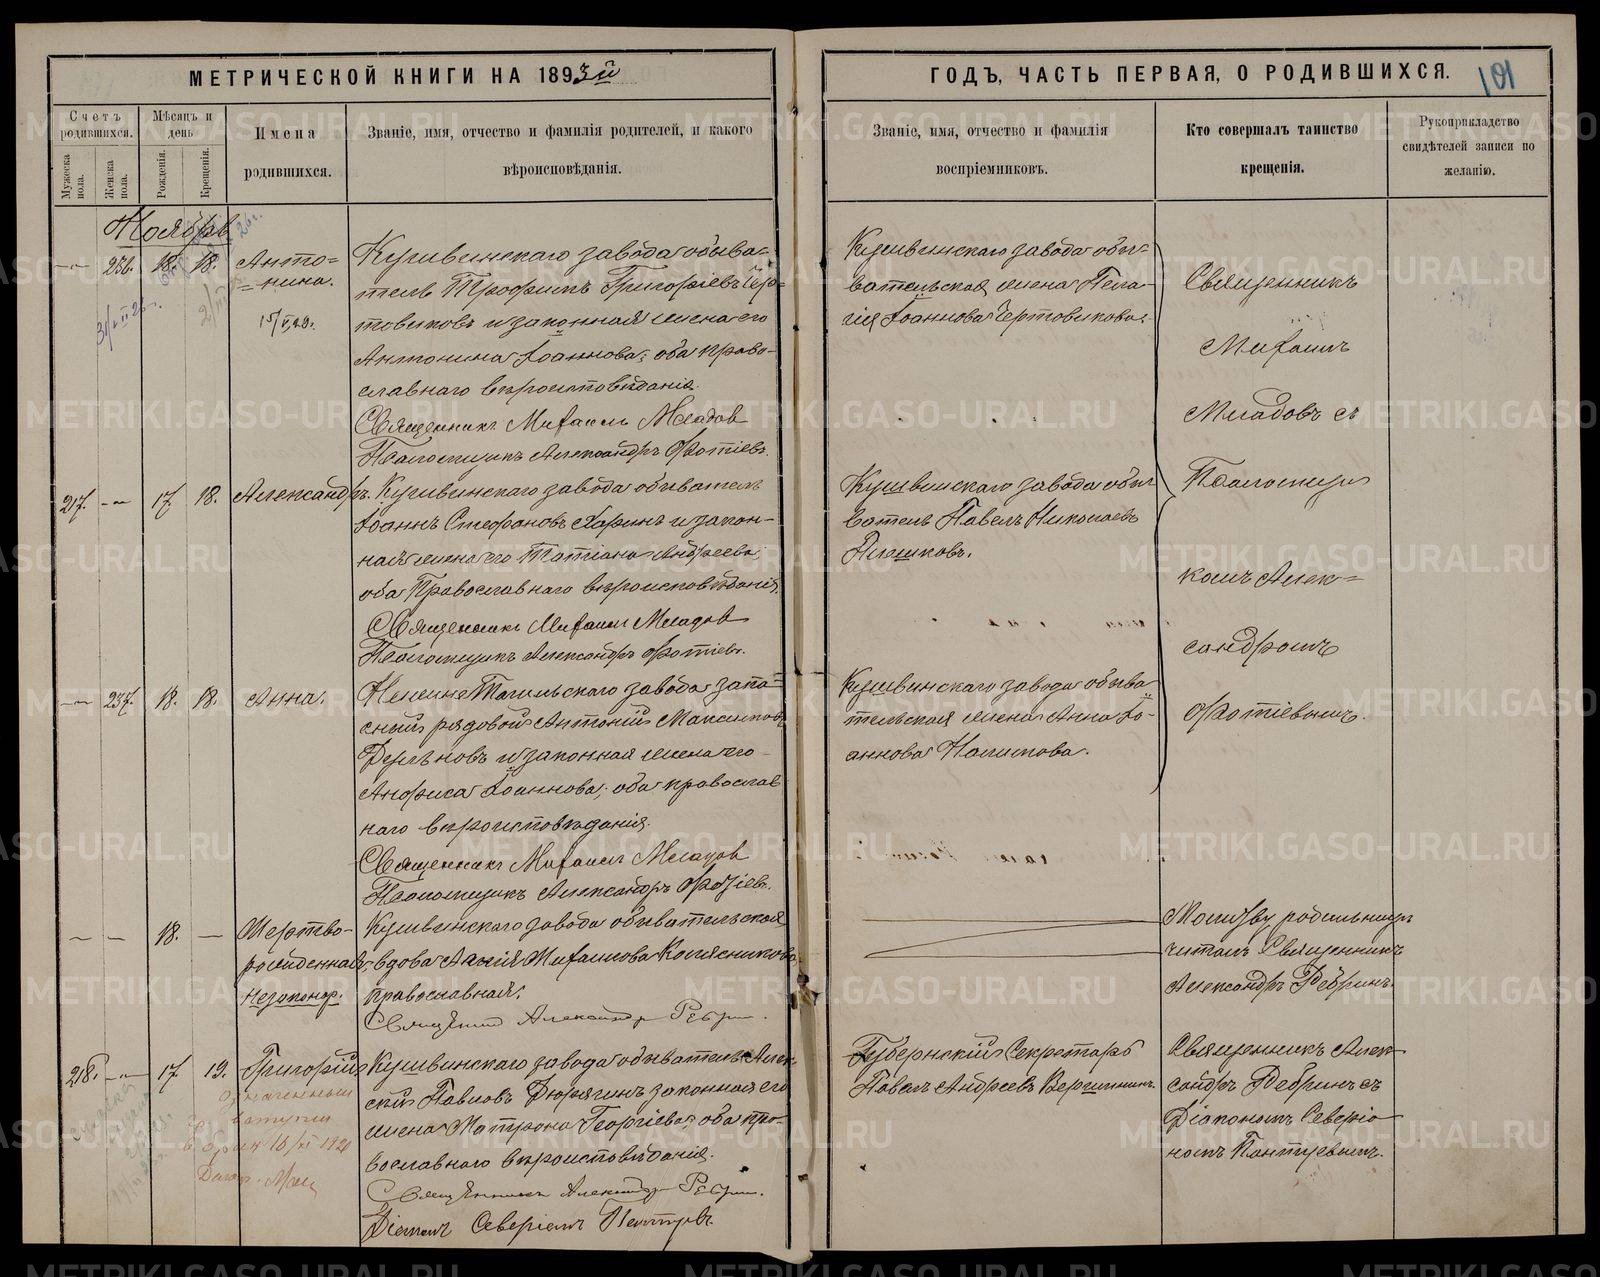 МЕТРИЧЕСКОЙ КНИГИ НА 1893й
ГОДЪ, ЧАСТЬ ПЕРВАЯ, О РОДИВШИХСЯ.
101
Счетъ родившихся.
Мужеска пола.
Женска пола.
Мѣсяцъ и день
Рожденія.
Крещенія.
Имена родившихся.
Званіе, имя, отчество и фамилія родителей, и какого
вѣроисповѣданія.
Званіе, имя, отчество и фамилія
воспріемниковъ.
Кто совершалъ таинство
крещенія.
Рукоприкладство
свидѣтелей записи по
желанію.
Ноябрь
236. 18. 18. Анто=
=нина.
Кушвинскаго завода обыва=
тель Трофимъ Григорьевъ Чер=
товиковъ и законная жена его
Антонина Іоаннова; оба право-
славнаго вѣроисповѣданія.
Священникъ Михаилъ Младов
Псаломщикъ Александръ Фотіевъ.
Кушвинскаго завода обы=
вательская жена Пела-
гія Іоаннова Чертовикова.
Священникъ
Михаилъ
Младовъ съ
Псаломщи
комъ Алек=
сандромъ
Фотіевымъ.
217. 17. 18. Александръ.
Кушвинскаго завода обыватель
Іоаннъ Стефановъ Ларинъ и закон-
ная жена его Татіана Андреева,
оба Православнаго вѣроисповѣданія.
Священникъ Михаилъ Младов
Псаломщикъ Александръ Фотіевъ.
Кушвинскаго завода обы
ватель Павелъ Николаевъ
237. 18. 18. Анна.
Нижне Тагильскаго завода запа=
сный рядовой Антоній Максимовъ
и законная жена его
Анфиса Іоаннова; оба православ
наго вѣроисповѣданія.
Священникъ Михаилъ Младов
Псаломщикъ Александръ Фотіевъ.
Кушвинскаго завода обыва
тельская жена Анна Іо-
аннова
18. Мертво-
рожденная
незаконнор.
Кушвинскаго завода обывательская
вдова Михаилова
православная.
Священник Александр Ребрин.
Молитву родильницѣ
читалъ Священникъ
Александръ Ребринъ.
218. 17. 19. Григорій
Кушвинскаго завода обыватель Алек-
сѣй Павловъ Дюрягинъ законная его
жена Матрона Георгіева; оба пра-
вославнаго вѣроисповѣданія.
Священникъ Александр Ребрин.
Діаконъ
Губернскій Секретарь
Павелъ Андреевъ
Священникъ Алек-
сандръ Ребринъ съ
Діакономъ Северіа
номъ
METRIKI.GASO-URAL.RU